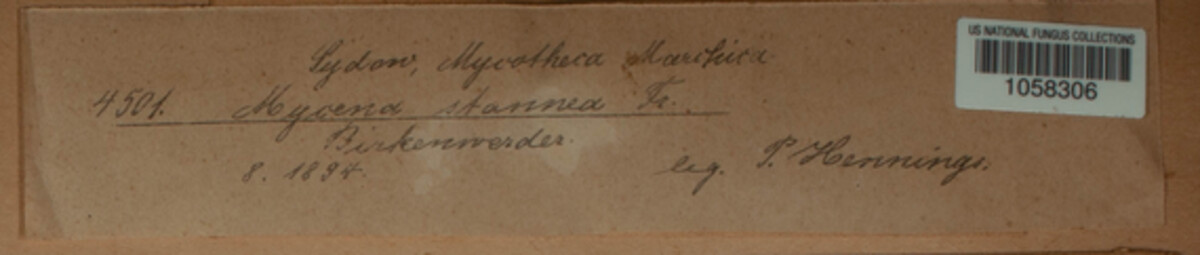 Sydow, Mycotheca Marchica
4501. Mycena stannea Fr.
Birkenwerder.
8. 1894. leg. P. Hennings.
US NATIONAL FUNGUS COLLECTIONS
1058306